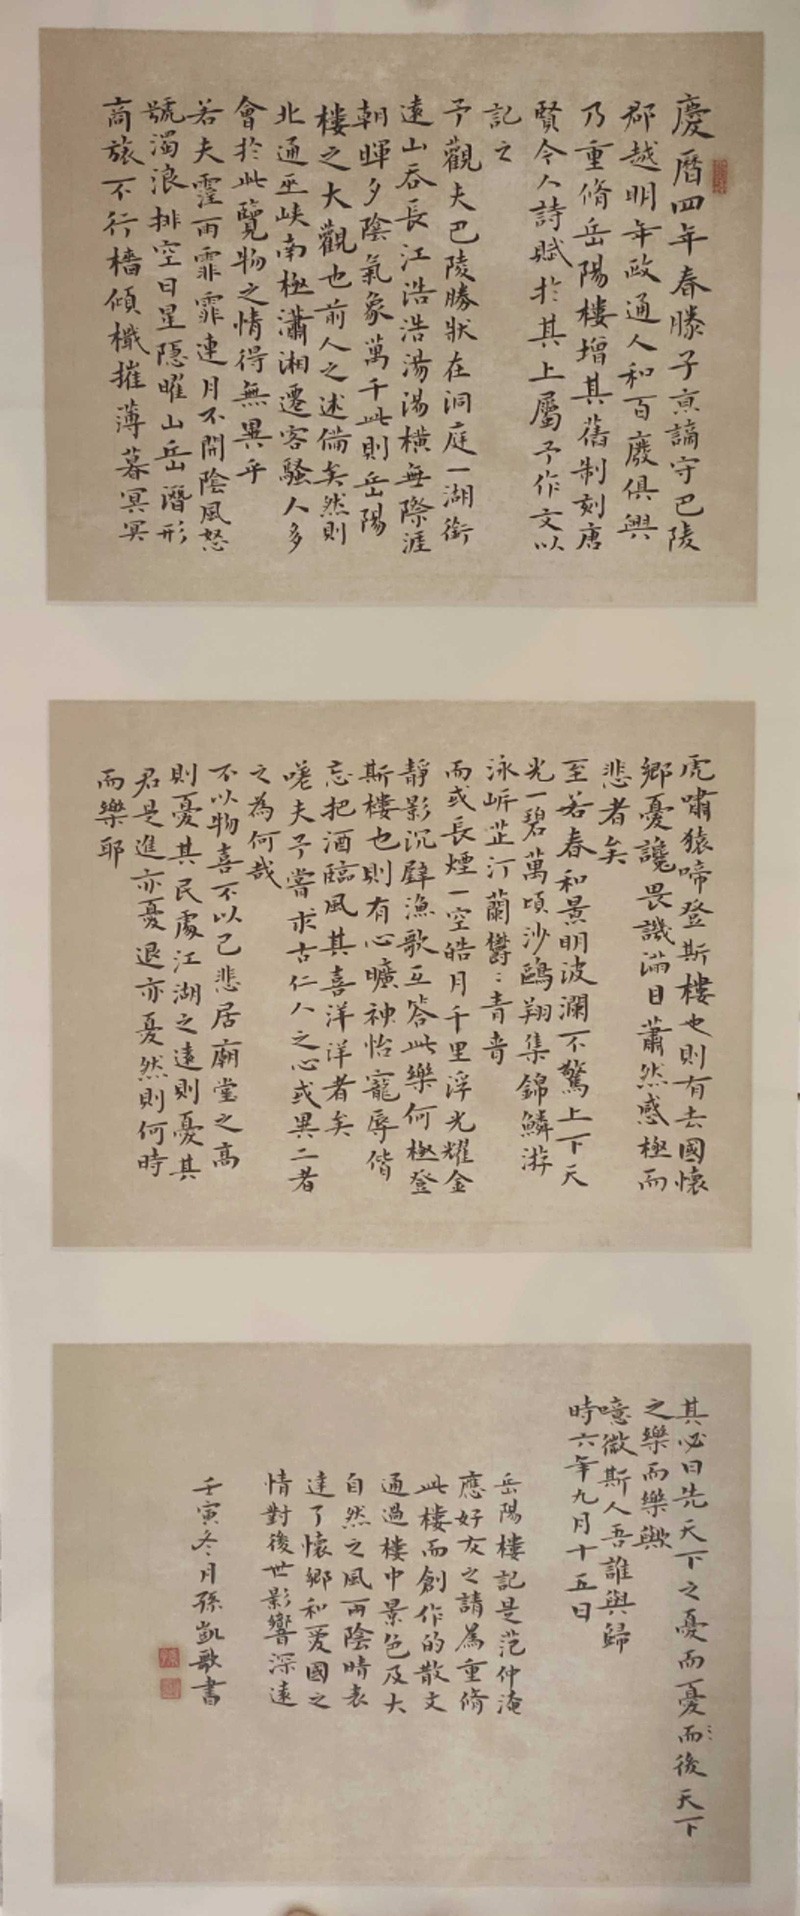 慶曆四年春滕子京謫守巴陵
郡越明年政通人和百廢俱興
乃重脩岳陽樓增其舊制刻唐
賢今人詩賦於其上屬予作文以
記之
予觀夫巴陵勝狀在洞庭一湖銜
遠山吞長江浩浩湯湯橫無際涯
朝暉夕陰氣象萬千此則岳陽
樓之大觀也前人之述備矣然則
北通巫峽南極瀟湘遷客騷人多
會於此覽物之情得無異乎
若夫霪雨霏霏連月不開陰風怒
號濁浪排空日星隱曜山岳潛形
商旅不行檣傾檝摧薄暮冥冥
虎嘯猿啼登斯樓也則有去國懷
鄉憂讒畏譏滿目蕭然感極而
悲者矣
至若春和景明波瀾不驚上下天
光一碧萬頃沙鷗翔集錦鱗游
泳岸芷汀蘭鬱〻青青
而或長煙一空皓月千里浮光耀金
靜影沉璧漁歌互答此樂何極登
斯樓也則有心曠神怡寵辱偕
忘把酒臨風其喜洋洋者矣
嗟夫予嘗求古仁人之心或異二者
之為何哉
不以物喜不以己悲居廟堂之高
則憂其民處江湖之遠則憂其
君是進亦憂退亦憂然則何時
而樂耶
其必曰先天下之憂而憂而後天下
之樂而樂歟
噫微斯人吾誰與歸
時六年九月十五日
岳陽樓記是范仲淹
應好友之請為重脩
此樓而創作的散文
通過樓中景色及大
自然之風雨陰晴表
達了懷鄉和愛國之
情對後世影響深遠
壬寅冬月孫凱歌書